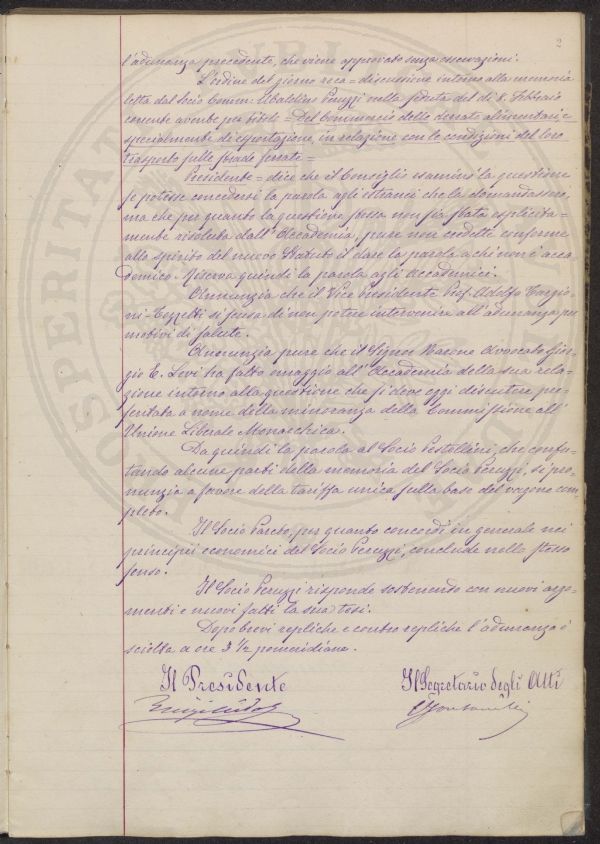 2
l'adunanza precedente, che viene approvato senza osservazioni.
L'ordine del giorno reca = discussione intorno alla memoria
letta dal Socio Comm. Ubaldino Peruzzi nella seduta del dì 8. Febbraio
corrente avente per titolo = Del Commercio delle derrate alimentari e
specialmente di esportazione, in relazione con le condizioni del loro
trasporto sulle strade ferrate =
Presidente = dice che il Consiglio esaminò la questione
se potesse concedersi la parola agli estranei che la domandassero,
ma che per quanto la questione stessa non sia stata esplicita=
mente risoluta dall'Accademia, pure non credette conforme
allo spirito del nuovo Statuto il dare la parola a chi non è acca=
demico. Riserva quindi la parola agli Accademici.
Annunzia che il Vice Presidente Prof. Adolfo Targio=
ni-Tozzetti si scusa di non potere intervenire all'adunanza per
motivi di salute.
Annunzia pure che il Signor Barone Avvocato Gior=
gio E. Levi ha fatto omaggio all'Accademia della sua rela=
zione intorno alla questione che si deve oggi discutere pre=
sentata a nome della minoranza della Commissione all'
Unione Liberale Monarchica.
Da quindi la parola al Socio Pestellini, che confu=
tando alcune parti della memoria del Socio Peruzzi, si pro=
nunzia a favore della tariffa unica sulla base del vagone com=
pleto.
Il Socio Pareto, per quanto concordi in generale nei
principii economici del Socio Peruzzi, conclude nello stesso
senso.
Il Socio Peruzzi risponde sostenendo con nuovi argo=
menti e nuovi fatti la sua tesi.
Dopo brevi repliche e contro repliche l'adunanza è
sciolta a ore 3 1/2 pomeridiane.
Il Presidente
Il Segretario degli Atti